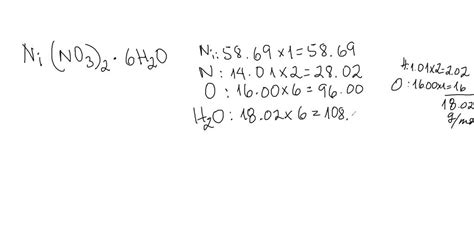 Ni(NO3)2 · 6H2O
Ni: 58.69 x 1 = 58.69
N: 14.01 x 2 = 28.02
O: 16.00 x 6 = 96.00
H2O: 18.02 x 6 = 108.
H: 1.01 x 2 = 2.02
O: 1600 x 1 = 16
18.02